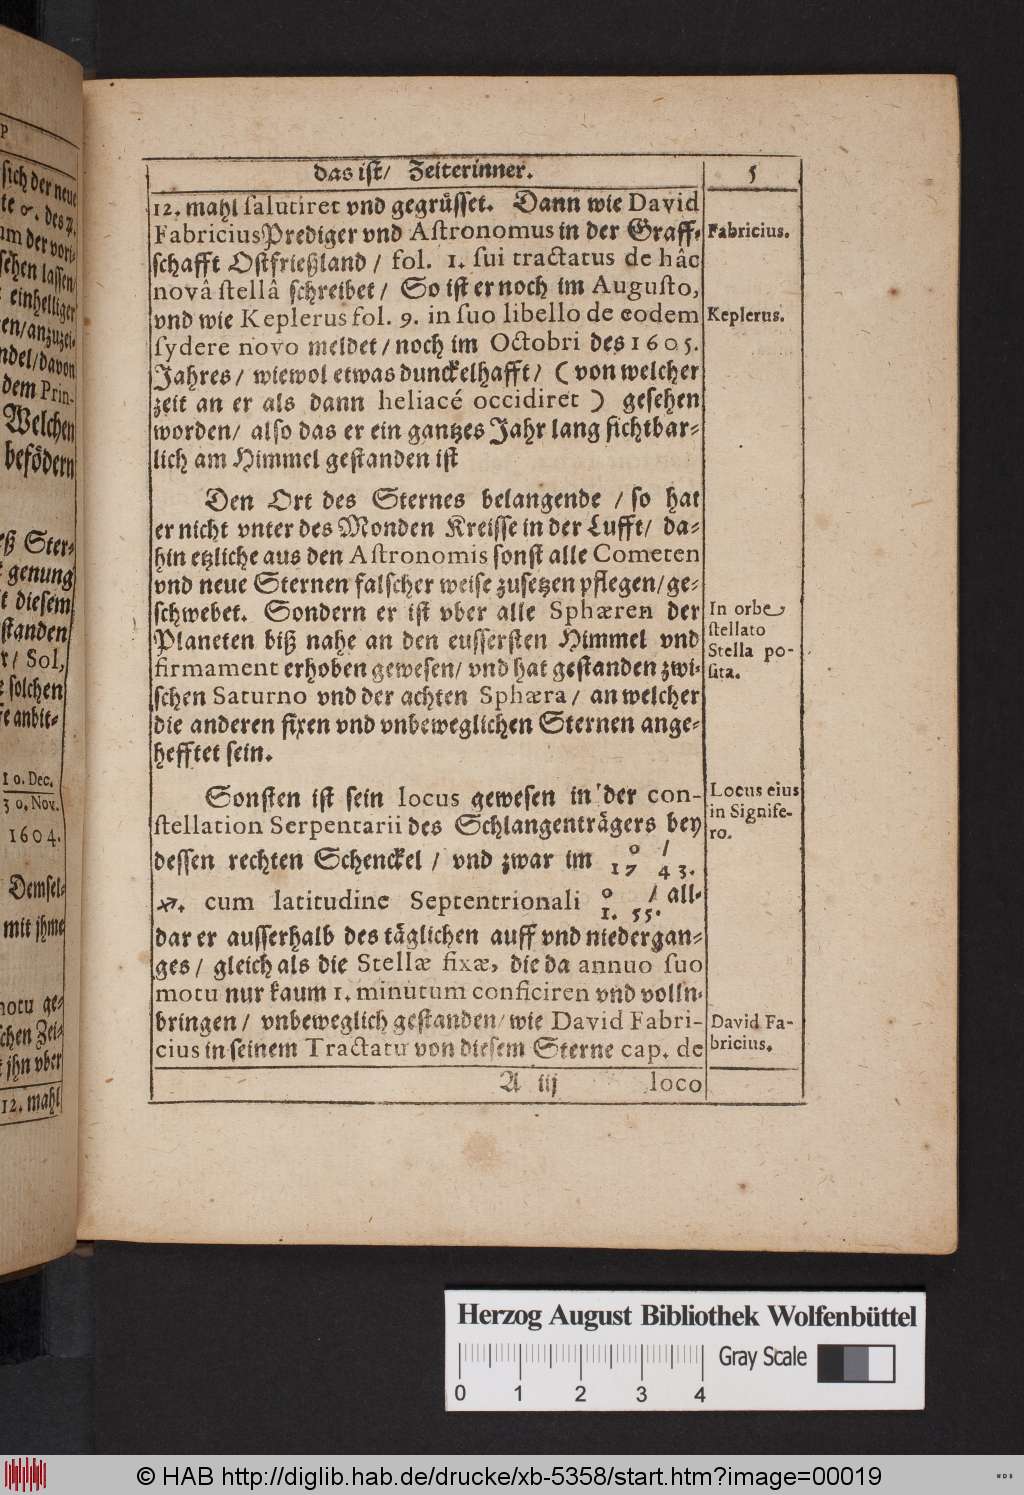 das ist/ Zeiterinner. 5
12. mahl salutiret vnd gegrüsset. Dann wie David
Fabricius Prediger vnd Astronomus in der Graff-
schafft Ostfrießland / fol. 1. sui tractatus de hâc
novâ stellâ schreibet / So ist er noch im Augusto,
vnd wie Keplerus fol. 9. in suo libello de eodem
sydere novo meldet / noch im Octobri des 1605.
Jahres / wiewol etwas dunckelhafft / ( von welcher
zeit an er als dann heliacé occidiret ) gesehen
worden / also das er ein gantzes Jahr lang sichtbar-
lich am Himmel gestanden ist
Fabricius.
Keplerus.
Den Ort des Sternes belangende / so hat
er nicht vnter des Monden Kreisse in der Lufft / da-
hin etzliche aus den Astronomis sonst alle Cometen
vnd neue Sternen falscher weise zusetzen pflegen / ge-
schwebet. Sondern er ist vber alle Sphæren der
Planeten biß nahe an den eussersten Himmel vnd
firmament erhoben gewesen / vnd hat gestanden zwi-
schen Saturno vnd der achten Sphæra / an welcher
die anderen fixen vnd vnbeweglichen Sternen ange-
hefftet sein.
In orbe
stellato
Stella po-
sita.
Sonsten ist sein locus gewesen in der con-
stellation Serpentarii des Schlangenträgers bey
dessen rechten Schenckel / vnd zwar im 17° 43′.
♐. cum latitudine Septentrionali 1°. 55′. all-
dar er ausserhalb des täglichen auff vnd niedergan-
ges / gleich als die Stellæ fixæ, die da annuo suo
motu nur kaum 1. minutum conficiren vnd volln-
bringen / vnbeweglich gestanden / wie David Fabri-
cius in seinem Tractatu von diesem Sterne cap. de
Locus eius
in Signife-
ro.
David Fa-
bricius.
A iij loco
sich der neue
einhelliger
dem Prin-
Welchen
befödern
Ster-
genung
diesem
standen
Sol,
solchen
anbit-
10. Dec.
30. Nov.
1604.
Demsel-
mit jhme
motu ge-
schen Zei-
jhn vber
12. mahl
Herzog August Bibliothek Wolfenbüttel
Gray Scale
0 1 2 3 4
© HAB http://diglib.hab.de/drucke/xb-5358/start.htm?image=00019